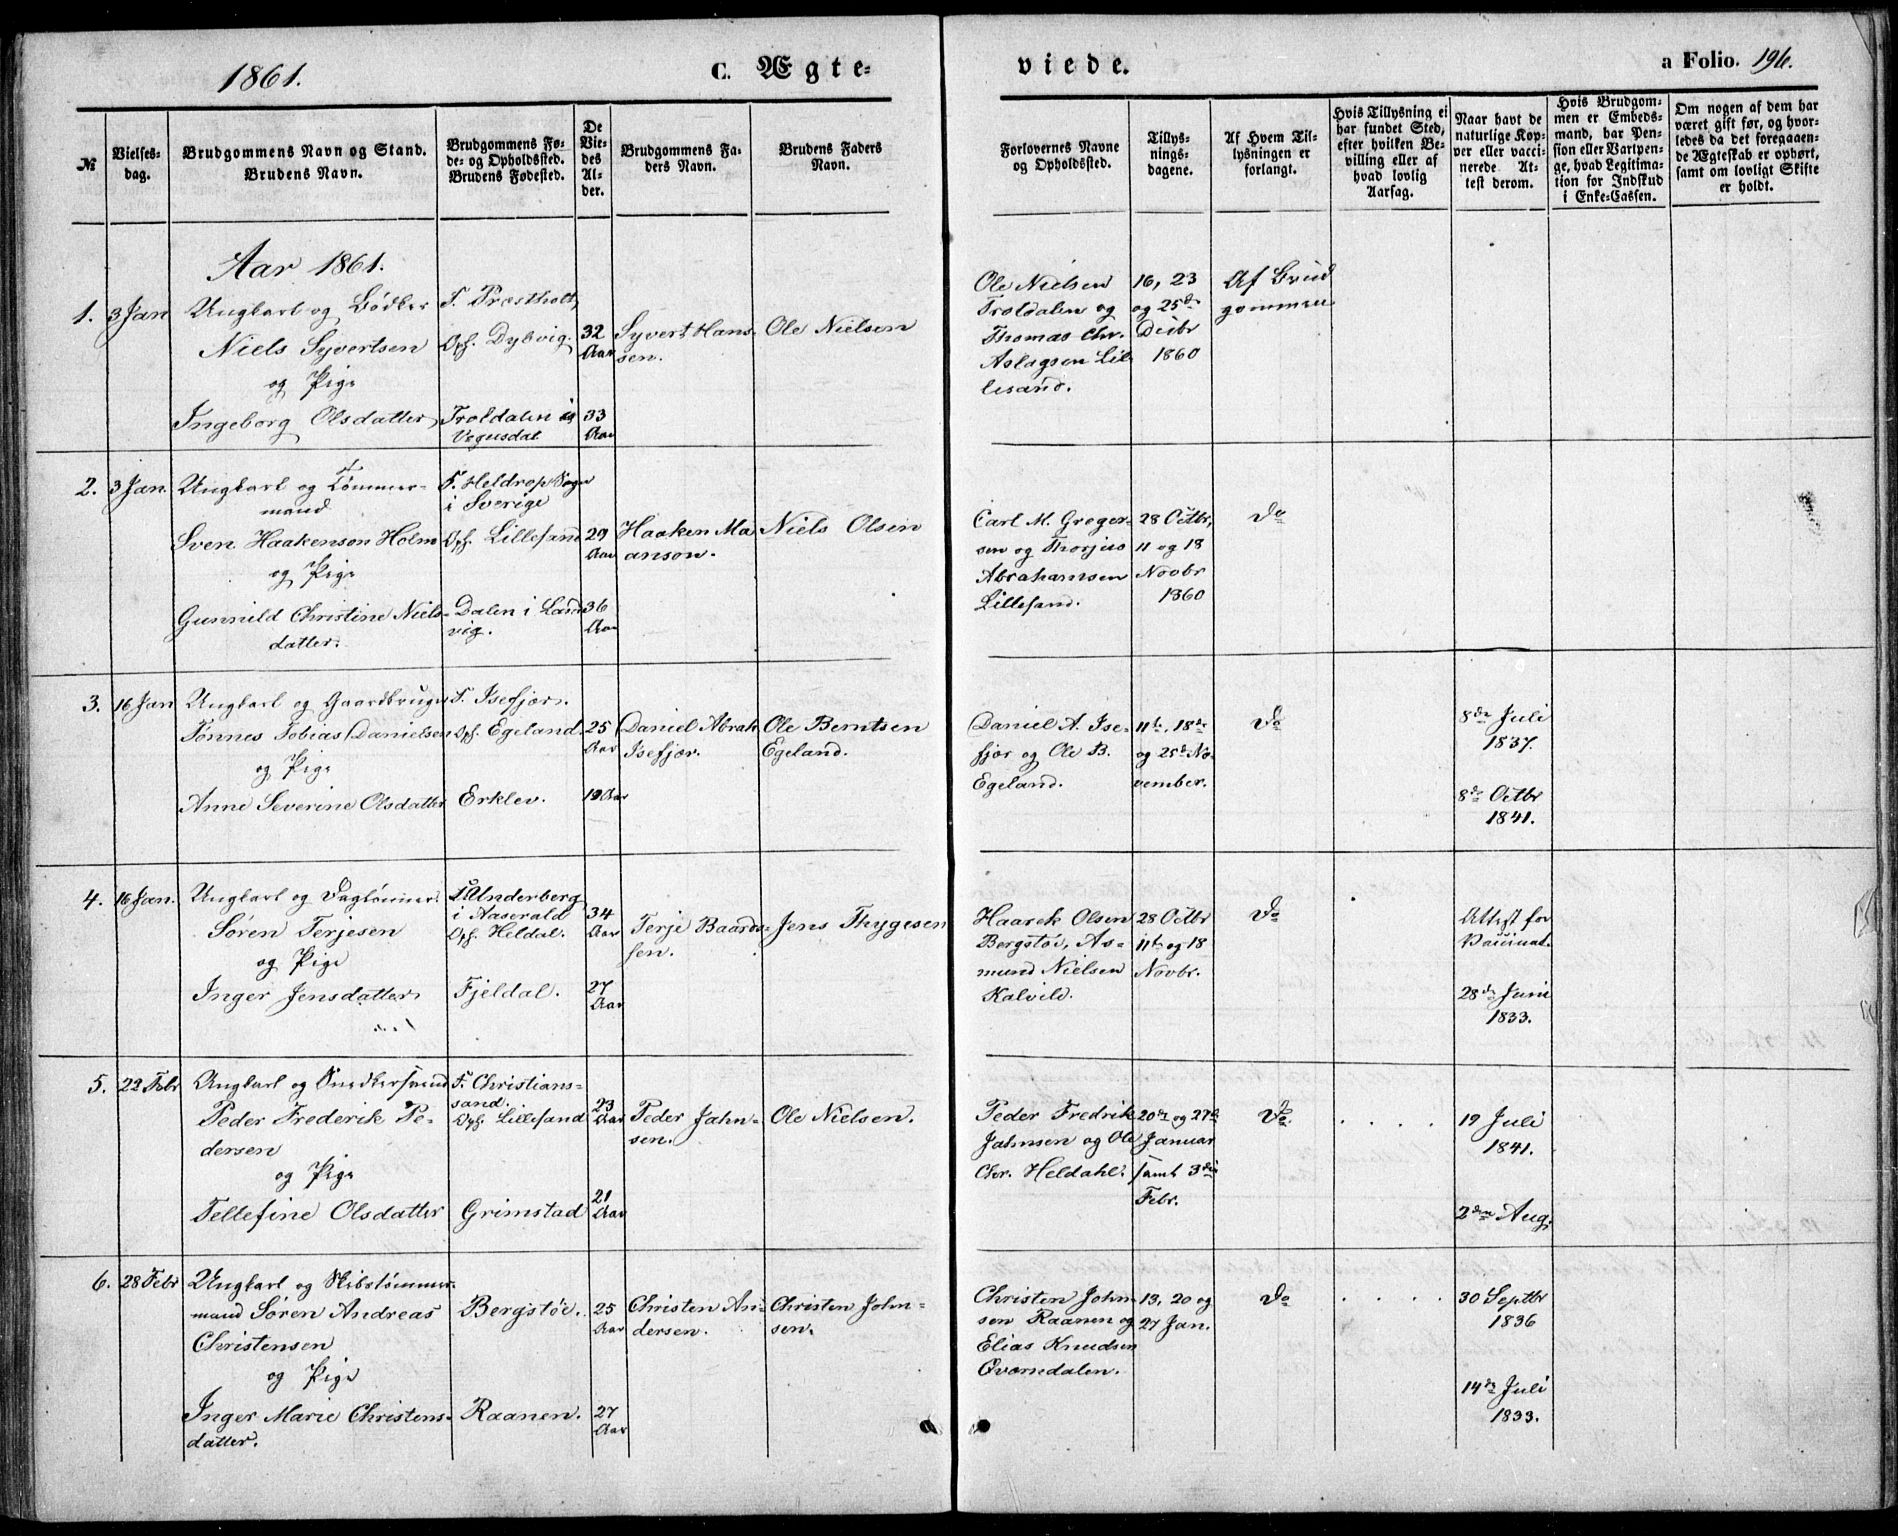 1861.
C. Ægte-
viede.
a Folio. 196.
№
Vielses-
dag.
Brudgommens Navn og Stand.
Brudens Navn.
Brudgommens Fø-
de- og Opholdssted.
Brudens Fødested.
De
Vie-
des
Al-
der.
Brudgommens Fa-
ders Navn.
Brudens Faders
Navn.
Forlovernes Navne
og Opholdssted.
Tillys-
nings-
dagene.
Af Hvem Til-
lysningen er
forlangt.
Hvis Tillysning ei
har fundet Sted,
efter hvilken Be-
villing eller af
hvad lovlig
Aarsag.
Naar havt de
naturlige Kop-
per eller vacci-
nerede. At-
test derom.
Hvis Brudgom-
men er Embeds-
mand, har Pen-
sion eller Vartpen-
ge, hvad Legitima-
tion for Indskud
i Enke-Cassen.
Om nogen af dem har
været gift før, og hvor-
ledes da det foregaaen-
de Ægteskab er ophørt,
samt om lovligt Skifte
er holdt.
Aar 1861.
1. 3 Jan
Ungkarl og Bødker
Niels Syvertsen
og Pige
Ingeborg Olsdatter
F. Præstholt,
Oph. Dybvig.
Troldalen i
Vegusdal
32
Aar
33
Aar
Syvert Han-
sen.
Ole Nielsen
Ole Nielsen
Troldalen og
Thomas Chr.
Aslagsen Lil-
lesand.
16, 23
og 25de
Decbr
1860
Af Brud
gommen
2. 3 Jan.
Ungkarl og Tømmer-
mand
Sven Haakenson Holm
og Pige
Gunnild Christine Niels-
datter.
F. Heldrop Sogn
i Sverige
Oph. Lillesand
Dalen i Land
vig.
29
Aar
36
Aar
Haaken Ma
anson.
Niels Olsen
Carl M. Greger-
sen og Thorjus
Abrahamsen
Lillesand.
28 Octbr,
11 og 18
Novbr
1860
Do
3. 16 Jan
Ungkarl og Gaardbruger
Tønnes Tobias Danielsen
og Pige
Anne Severine Olsdatter
F. Isefjær.
Oph. Egeland.
Erklev.
25
Aar
19 Aar
Daniel Abrah
Isefjær.
Ole Berntsen
Egeland.
Daniel A. Ise-
fjær og Ole B.
Egeland.
11te, 18de
og 25de No-
vember.
Do
8de Juli
1837.
8de Octbr
1841.
4. 16 Jan.
Ungkarl og Daglønner
Søren Terjesen
og Pige
Inger Jensdatter
F. Underberg
i Aaserald
Oph. Heldal.
Fjeldal.
34
Aar
27
Aar
Terje Baards-
sen.
Jens Thygesen
Haarek Olsen
Bergstøe, As-
mund Nielsen
Kalvild.
28 Octbr
11te og 18
Novbr.
Do
Attest for
Vaccinat.
28de Juni
1833.
5. 22 Febr
Ungkarl og Snedkersvend
Peder Frederik Pe-
dersen
og Pige
Tellefine Olsdatter
F. Christians-
sand.
Oph. Lillesand
Grimstad
23
Aar
21
Aar
Peder Jahn-
sen.
Ole Nielsen.
Peder Fredrik
Jahnsen og Ole
Chr. Heldahl.
20de og 27de
Januar
samt 3die
Febr.
Do. . . . .
19 Juli
1841.
2den Aug.
6. 28 Febr
Ungkarl og Skibstømmer-
mand Søren Andreas
Christensen
og Pige
Inger Marie Christens-
datter.
Bergstøe.
Raanen.
25
Aar
27
Aar
Christen An-
dersen.
Christen John-
sen.
Christen John-
sen Raanen og
Elias Knudsen
Qværnedalen.
13, 20 og
27 Jan.
Do . . . .
30 Septbr
1836
14de Juli
1833.